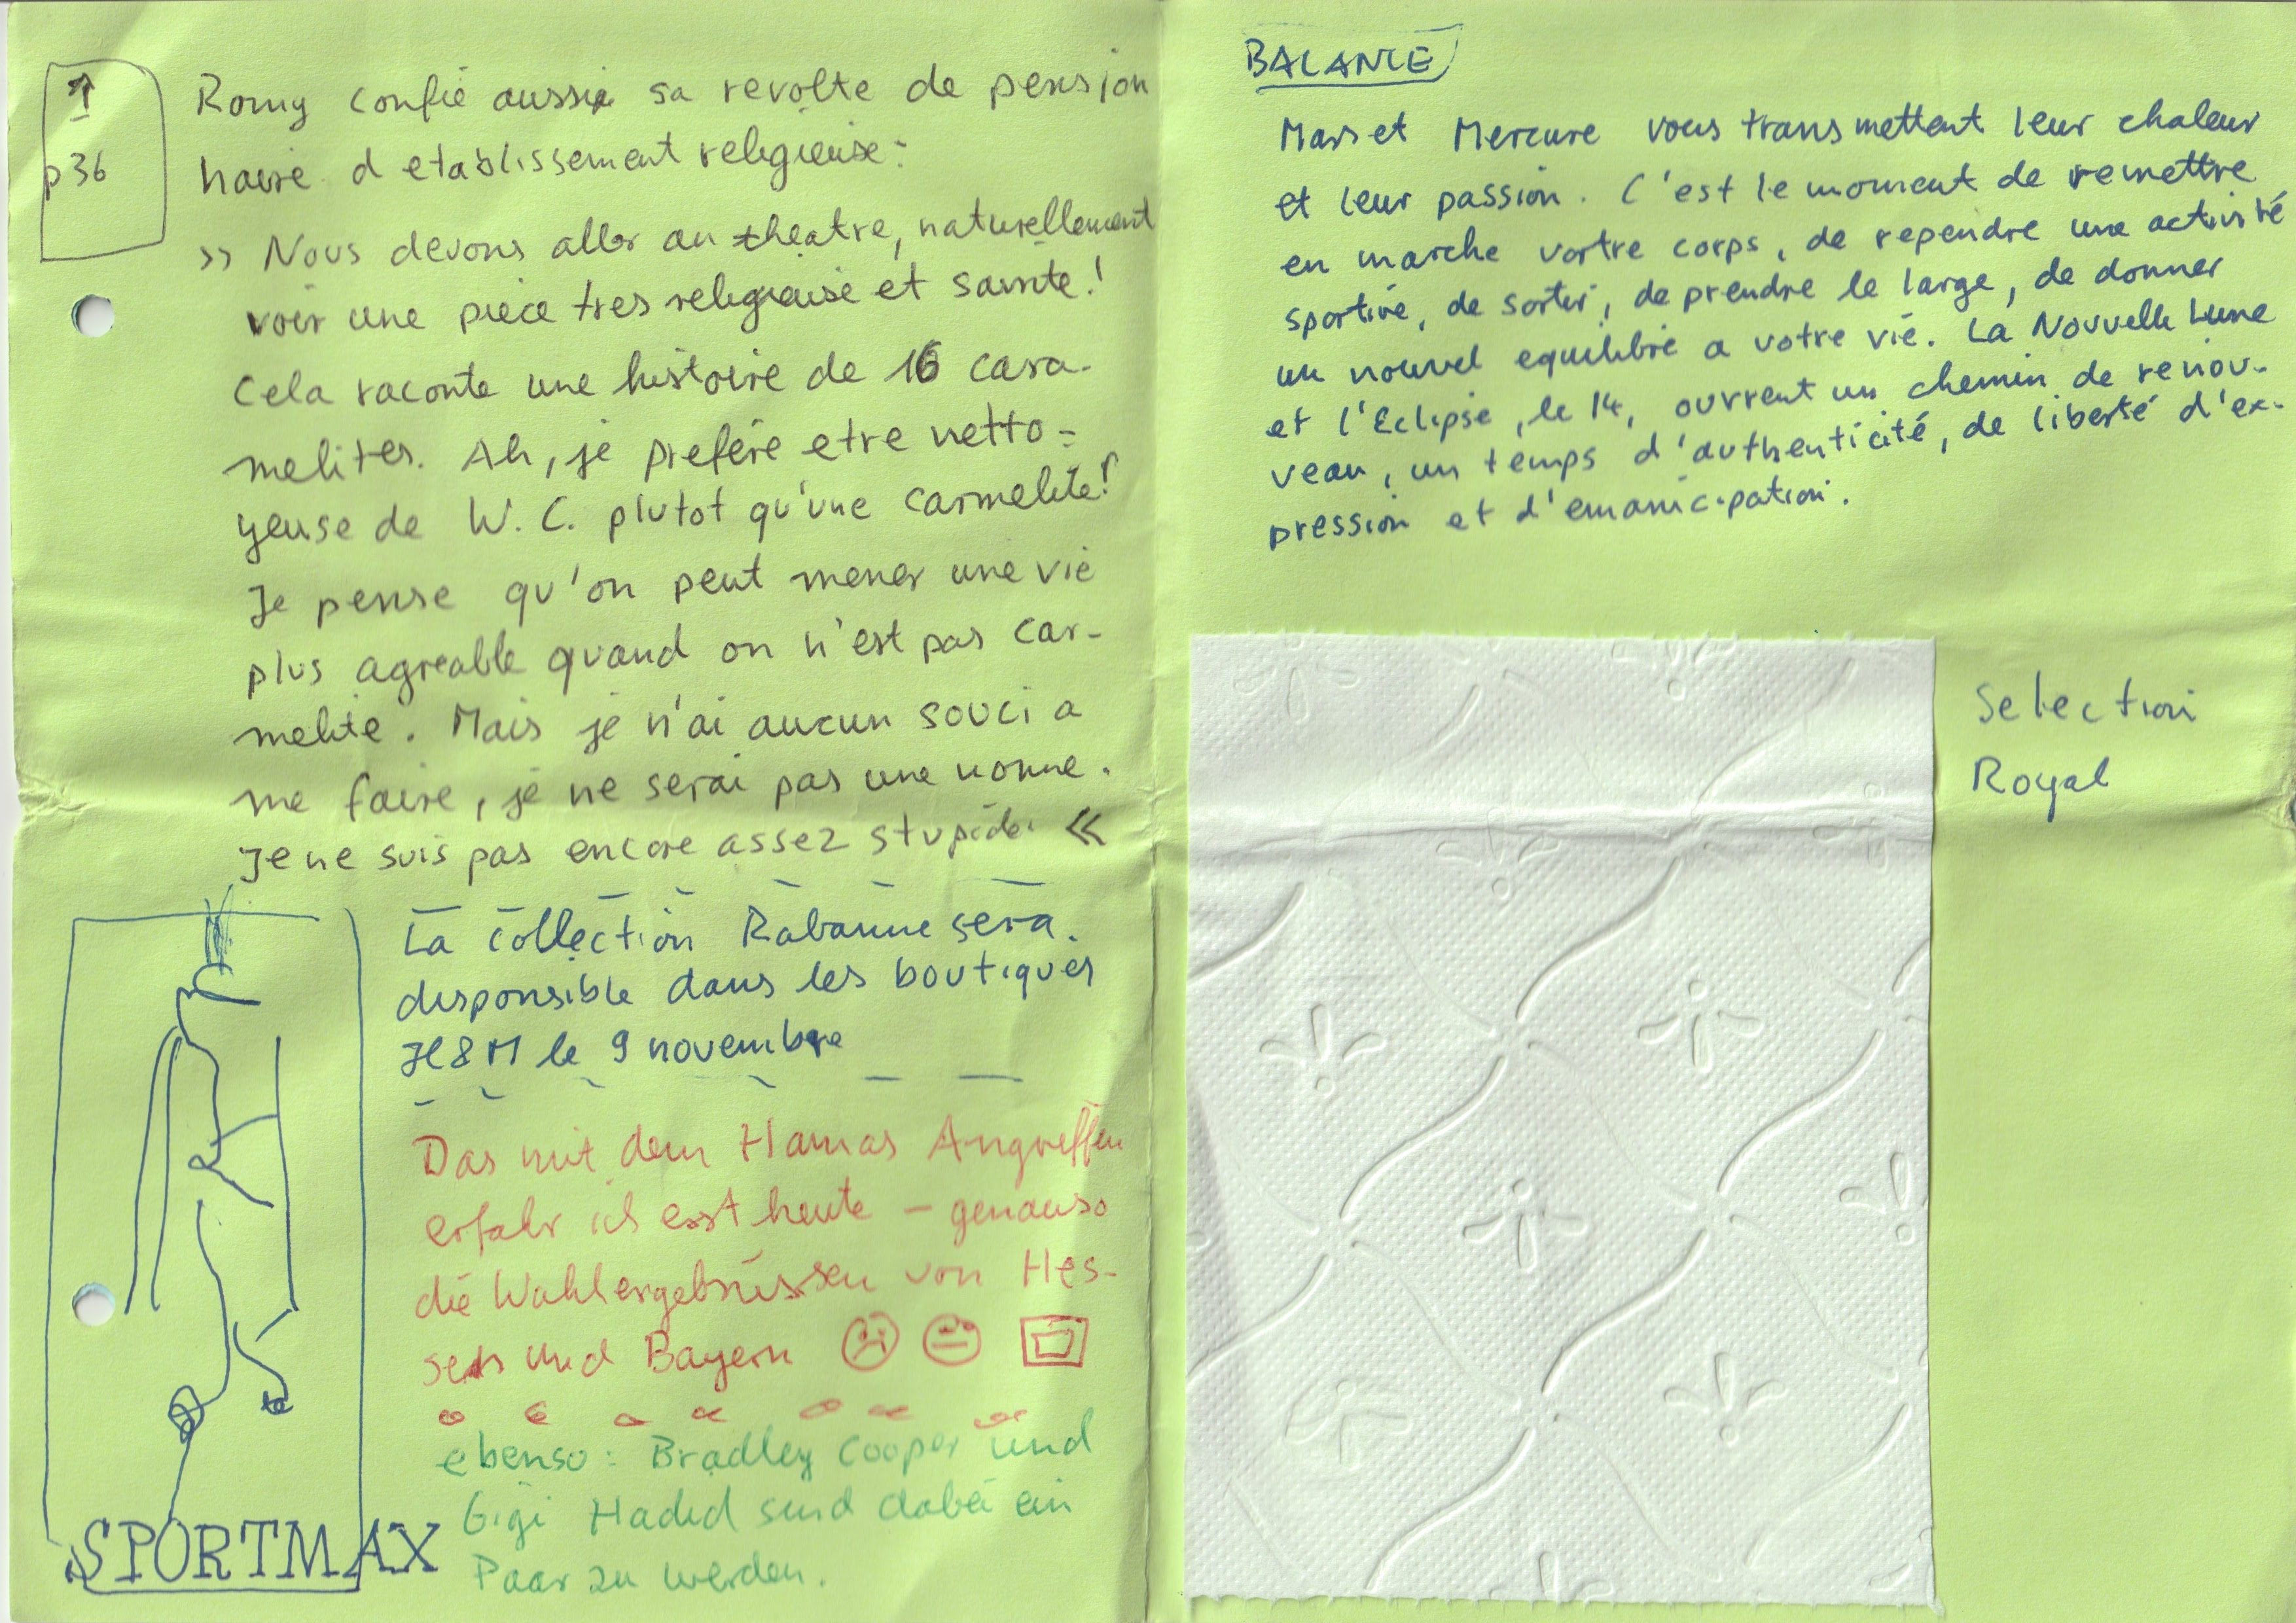 ↑
p 36
Romy confie aussi sa revolte de pension
naire d etablissement religieuse:
>> Nous devons aller au theatre, naturellement
voir une piece tres religieuse et sainte!
Cela raconte une histoire de 16 cara-
melites. Ah, je prefere etre netto-
yeuse de W. C. plutot qu'une carmelite!
Je pense qu'on peut mener une vie
plus agreable quand on n'est pas car-
melite. Mais je n'ai aucun souci a
me faire, je ne serai pas une nonne.
Je ne suis pas encore assez stupide. <<
La collection Rabanne sera
disponsible dans les boutiques
H&M le 9 novembre
Das mit dem Hamas Angreffen
erfahr ich esst heute – genauso
die Wahlergebnissen von Hes-
sen und Bayern
ebenso: Bradley Cooper und
Gigi Hadid sind dabei ein
Paar zu werden.
SPORTMAX
BALANCE
Mars et Mercure vous transmettent leur chaleur
et leur passion. C'est le moment de remettre
en marche vortre corps, de rependre une activité
sportive, de sortir, de prendre le large, de donner
un nouvel equilibre a votre vie. La Nouvelle Lune
et l'Eclipse, le 14, ouvrent un chemin de renou-
veau, un temps d'authenticité, de liberté d'ex-
pression et d'emanicipation.
Selection
Royal